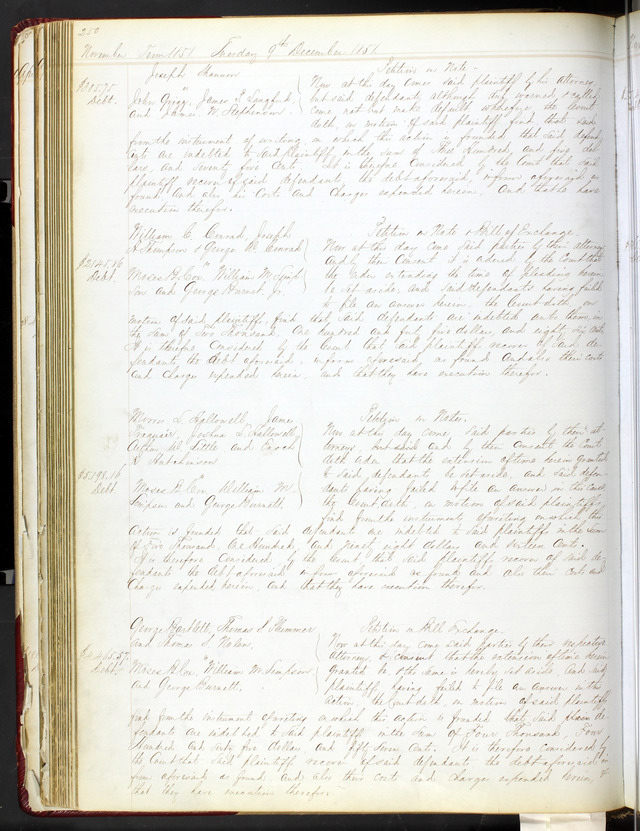 250
November Term 1851 Tuesday 9th December 1851
Joseph Charless Petition in Note.
Now at this day comes said plaintiff by his attorney,
$505.75 John Grigg, James L. Langford but said defendants although duly warned & called
Debt. and James W. Stephenson come not but make default wherefore the Court
doth, on motion of said plaintiff find that said
from the instrument of writing on which this action is founded that said defend
ants are indebted to said Plaintiff in the sum of Five Hundred and five dol
lars, and seventy five Cents. It is therefore Considered by the Court that said
plaintiff recover of said defendants the debt aforesaid in form aforesaid as
found and also his Costs and Charges expended herein, and that he have
execution therefor.
William C. Conrad, Joseph Petition on Note & Bill of Exchange.
A. Thompson & George W. Conrad Now at this day come said parties by their attorneys
" And by their Consent it is ordered by the Court that
Debt. Moses B. Cox, William W. Simp the order extending the time of Pleading herein
son and George Burnet, Jr. be set aside, and said defendants having failed
to file an answer herein, the Court doth, on
motion of said plaintiffs, find that said defendants are indebted unto them, in
the sum of Two Thousand, One hundred and forty five dollars, and eighty six Cents.
It is therefore Considered by the Court that said plaintiffs recover of said de-
fendants the debt aforesaid, in form aforesaid, as found and also their costs
and Charges expended herein, and that they have execution therefor.
Morris L. Hallowell, James Petition in Note.
Joshua L. Hallowell Now at this day come, said parties by their at-
W. Little and torneys and by their Consent the Court
S. Hutchinson doth order that the extension of time herein granted
$5198.16 " to said defendants, be set aside, and said defen-
Debt Moses B. Cox, William W. dants having failed to file an answer in this cause,
Simpson and George Burnett, the Court doth, on motion of said plaintiffs
find from the instrument of writing on which this
action is founded that said defendants are indebted to said plaintiffs in the sum
of Five Thousand, One Hundred, and ninety eight dollars and sixteen Cents.
It is therefore Considered by the Court that said plaintiffs recover of said de-
fendants the debt aforesaid in form aforesaid as found and also their Costs and
Charges expended herein, and that they have execution therefor.
George Bartlett, Thomas S. Petition on Bill Exchange.
and Thomas S. Nolan. Now at this day come said parties by their respective
" Attorneys, & consent that the extension of time herein
Debt. Moses B. Cox, William W. Simpson granted be & the same is hereby set aside, and said
and George Burnett. plaintiffs having failed to file an answer in this
action, the Court doth, on motion of said plaintiffs
find from the instrument of writing on which this action is founded that said de-
fendants are indebted to said plaintiffs in the sum of Four Thousand, Four
Hundred and sixty five dollars and fifty seven Cents. It is therefore Considered by
the Court that said plaintiffs recover of said defendants the debt aforesaid in
form aforesaid as found, and also their costs and charges expended herein, &
that they have execution therefor.